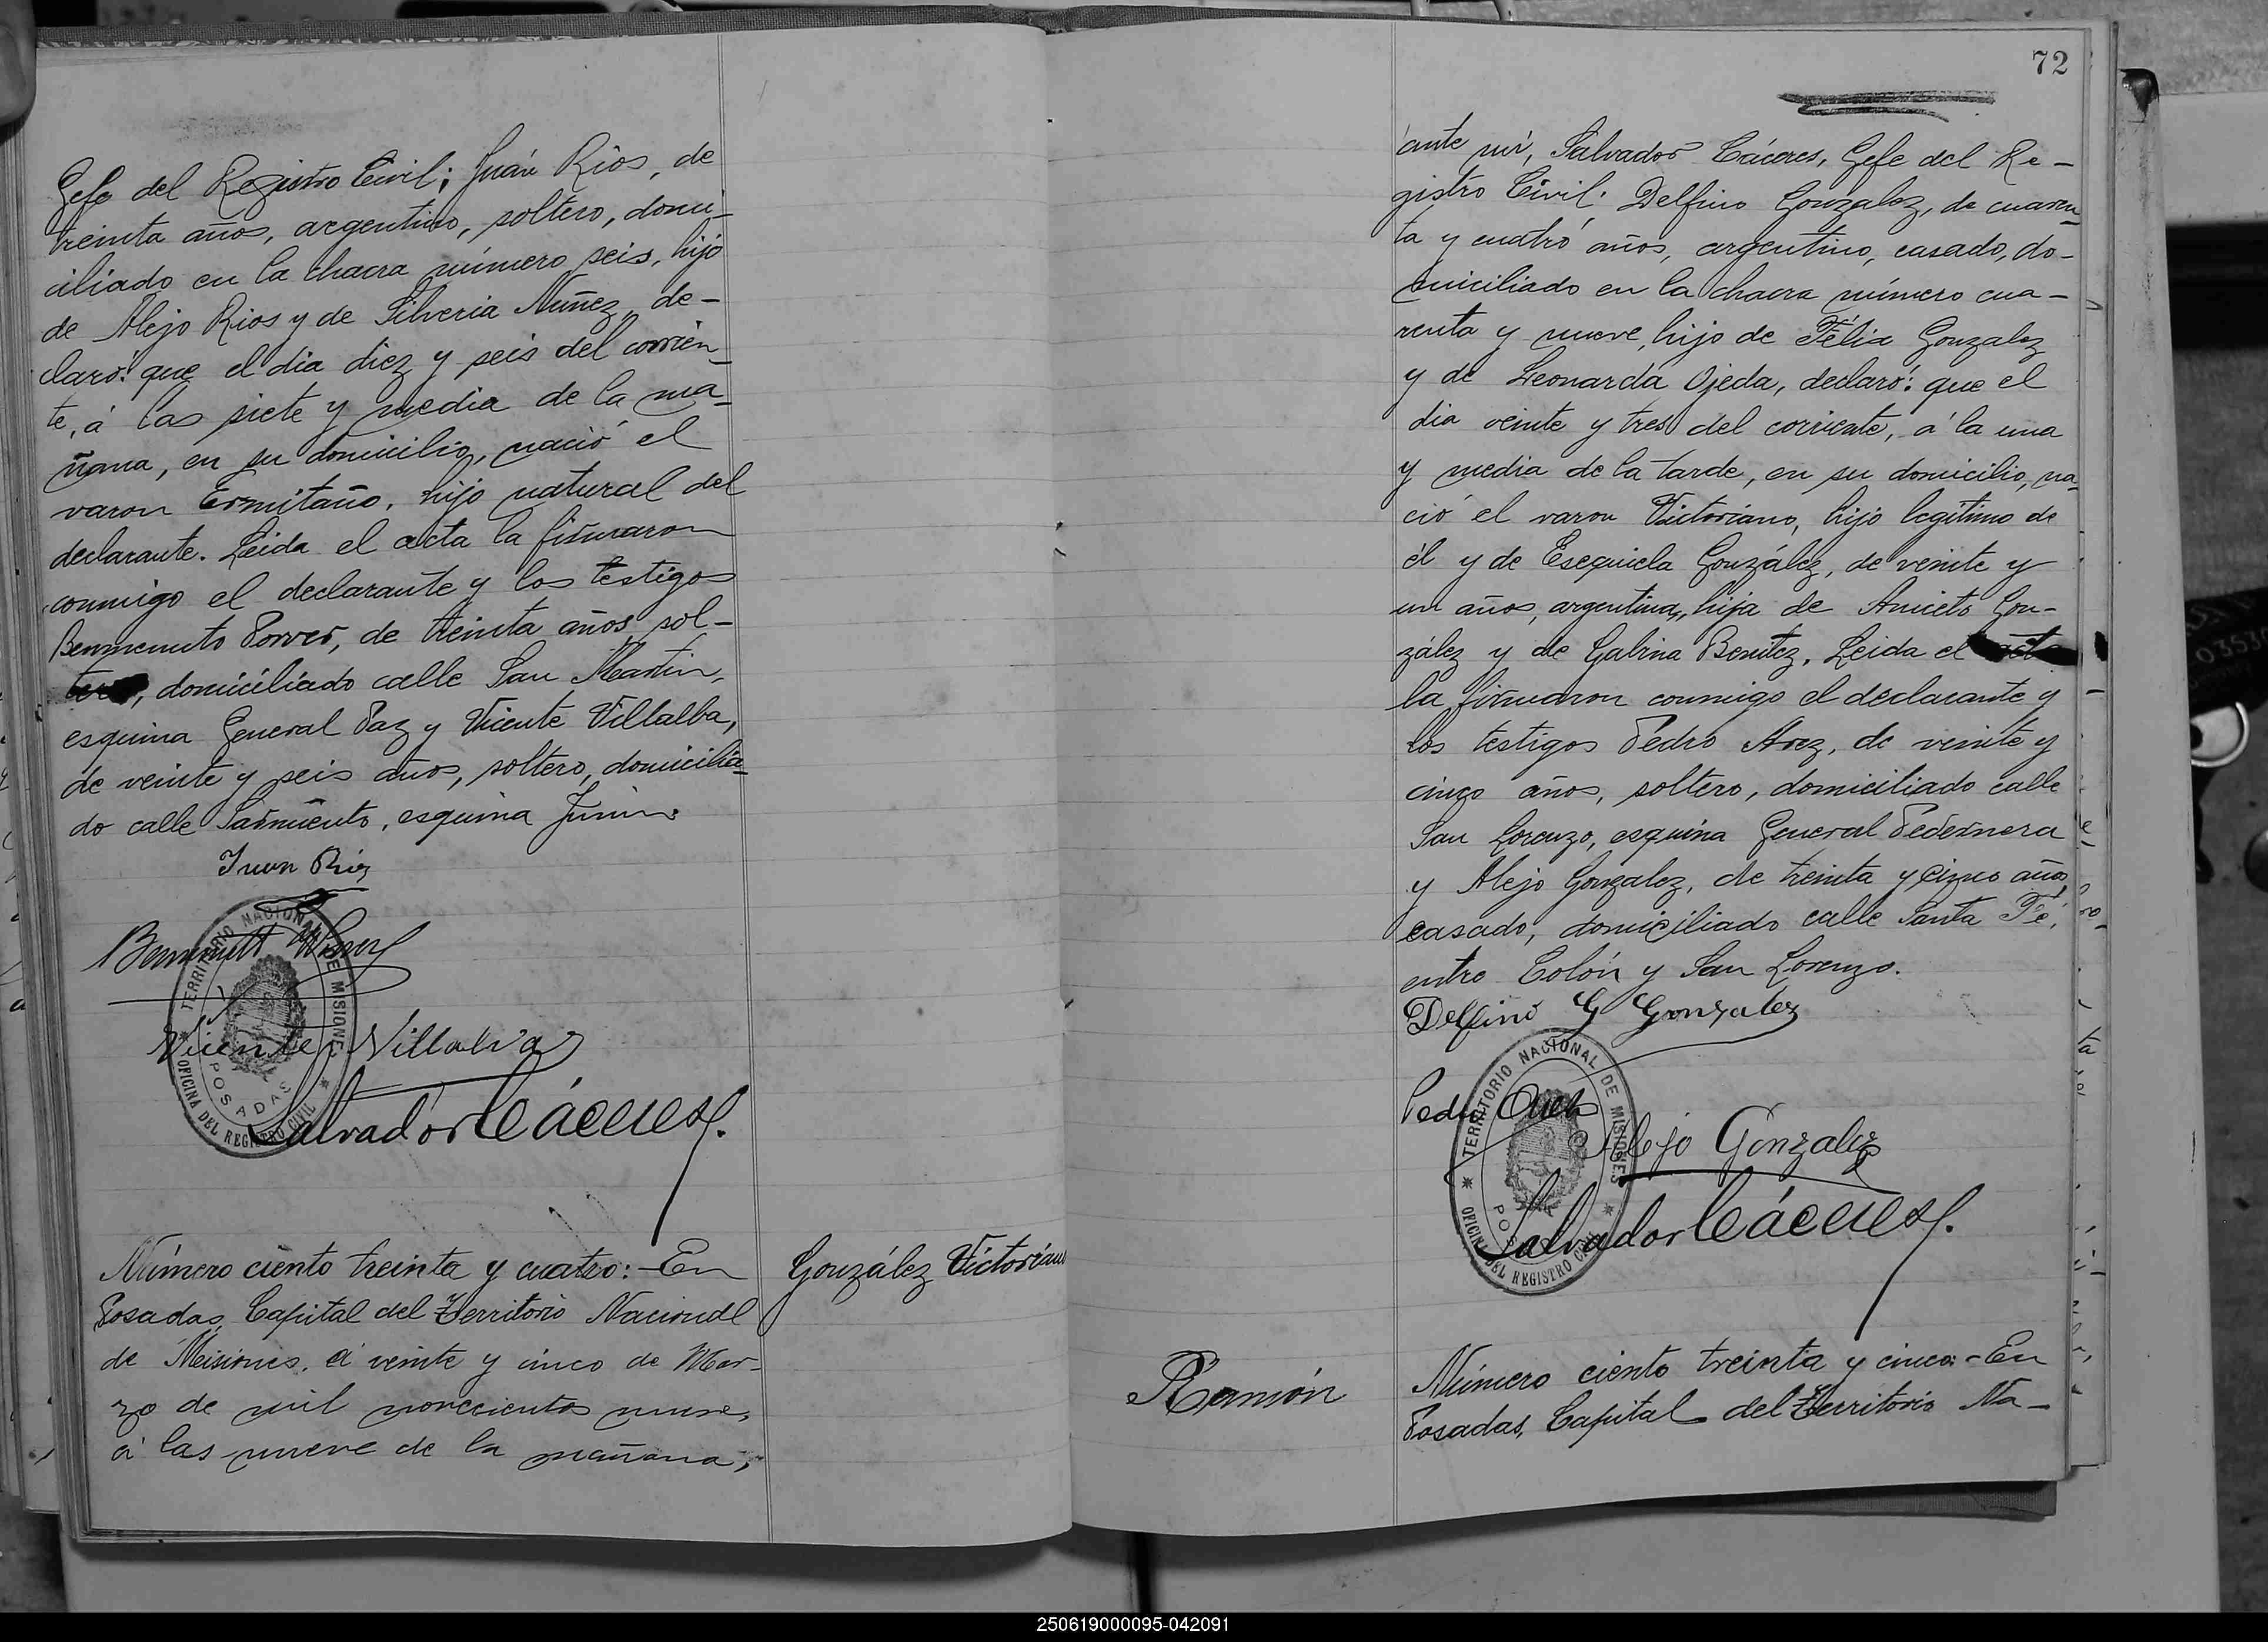 Gefe del Registro Civil; Juán Rios, de
treinta años, argentino, soltero, domi-
ciliado en la chacra número seis, hijo
de Alejo Rios y de Silveria Nuñez, de-
claró: que el dia diez y seis del corrien-
te, á las siete y media de la ma-
ñana, en su domicilio, nació el
varon Ermitaño, hijo natural del
declarante. Leida el acta la firmaron
conmigo el declarante y los testigos
de treinta años sol-
tero, domiciliado calle San Martin,
esquina General Paz y Vicente Villalba,
de veinte y seis años, soltero, domicilia-
do calle Sarmiento, esquina Junin.
Juan Rios
Vicente Villalva
Salvador Cáceres.
TERRITORIO NACIONAL DE MISIONES
OFICINA DEL REGISTRO CIVIL
POSADAS
Número ciento treinta y cuatro: - En
Posadas, Capital del Territorio Nacional
de Misiones, á veinte y cinco de Mar-
zo de mil novecientos nueve,
á las nueve de la mañana,
González Victoriano
72
ante mi, Salvador Cáceres, Gefe del Re-
gistro Civil. Delfino Gonzalez, de cuaren-
ta y cuatro años, argentino, casado, do-
miciliado en la chacra número cua-
renta y nueve, hijo de Félix Gonzalez
y de Leonarda Ojeda, declaró: que el
dia veinte y tres del corriente, á la una
y media de la tarde, en su domicilio, na-
ció el varon Victoriano, hijo legitimo de
él y de Esequiela González, de veinte y
un años, argentina, hija de Aniceto Gon-
zález y de Gabina Benitez. Leida el acta
la firmaron conmigo el declarante y
los testigos Pedro Arez, de veinte y
cinco años, soltero, domiciliado calle
San Lorenzo, esquina General Pedernera
y Alejo Gonzalez, de treinta y cinco años,
casado, domiciliado calle Santa Fé,
entre Colón y San Lorenzo.
Delfino G Gonzalez
Pedro
Alejo Gonzalez
Salvador Cáceres.
TERRITORIO NACIONAL DE MISIONES
OFICINA DEL REGISTRO CIVIL
POSADAS
Ramón
Número ciento treinta y cinco: - En
Posadas, Capital del Territorio Na-
250619000095-042091